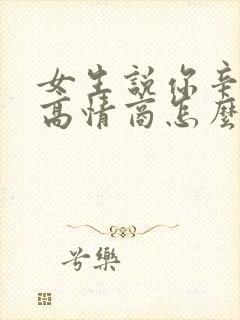 女生說你辛
高情商怎麼
兮樂